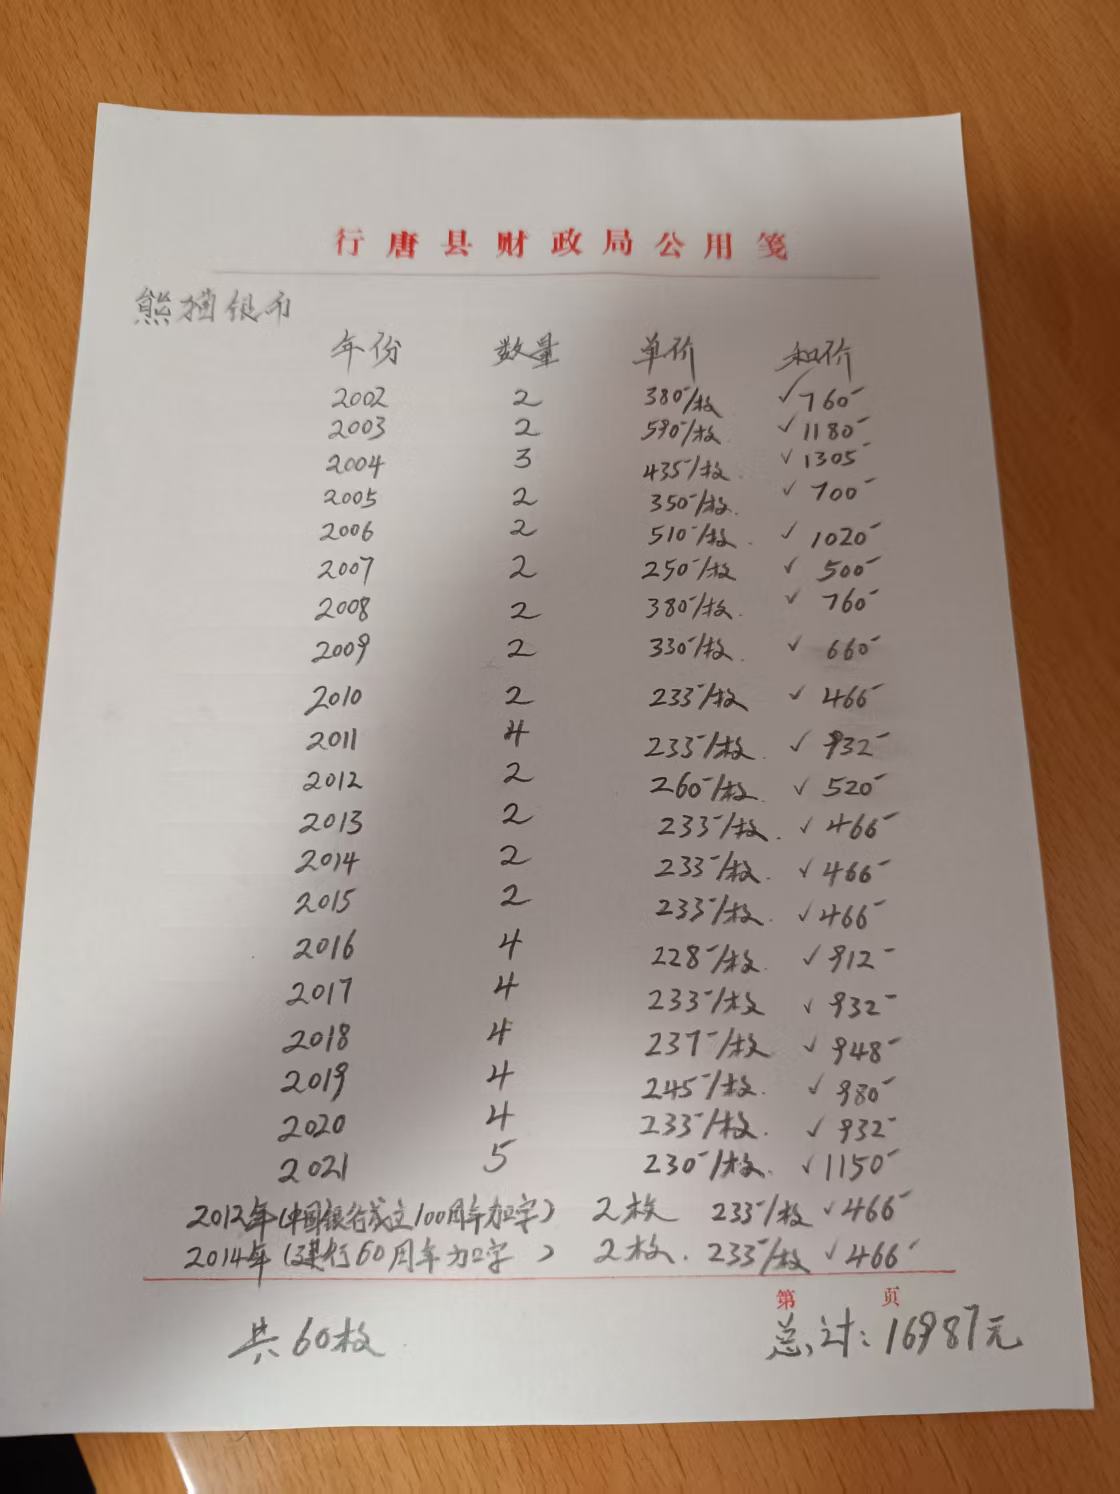 行唐县财政局公用笺
熊猫银币
年份 数量 单价 和价
2002 2 380-/枚 ✓760-
2003 2 590-/枚 ✓1180-
2004 3 435-/枚. ✓1305-
2005 2 350-/枚. ✓700-
2006 2 510-/枚. ✓1020-
2007 2 250-/枚 ✓500-
2008 2 380-/枚. ✓760-
2009 2 330-/枚. ✓660-
2010 2 233-/枚 ✓466-
2011 4 233-/枚. ✓932-
2012 2 260-/枚. ✓520-
2013 2 233-/枚. ✓466-
2014 2 233-/枚. ✓466-
2015 2 233-/枚. ✓466-
2016 4 228-/枚. ✓912-
2017 4 233-/枚 ✓932-
2018 4 237-/枚 ✓948-
2019 4 245-/枚. ✓980-
2020 4 233-/枚. ✓932-
2021 5 230-/枚. ✓1150-
2012年(中国银行成立100周年加字) 2枚 233-/枚 ✓466-
2014年(建行60周年加字) 2枚. 233-/枚 ✓466-
第 页
共60枚 总计:16987元